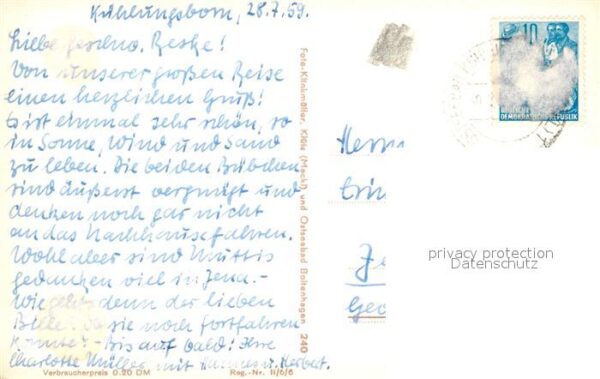 Kühlungsborn, 28.7.59.
Liebe Reske!
Von unserer großen Reise
einen herzlichen Gruß!
Es ist einmal sehr schön, so
in Sonne, Wind und Sand
zu leben. Die beiden Bübchen
sind äußerst vergnügt und
denken noch gar nicht
an das Nachhausefahren.
Wohl aber sind Muttis
gedanken viel in Jena.-
Wie geht's denn der lieben
Bille? sie noch fortfahren
- Bis auf bald! Ihre
Charlotte Müller mit u. Herbert.
Verbraucherpreis 0.20 DM
Reg.-Nr. II/6/6
Foto-Klinkmüller, Klütz (Meckl) und Ostseebad Boltenhagen 240
10
DEUTSCHE
DEMOKRATISCHE REPUBLIK
privacy protection
Datenschutz